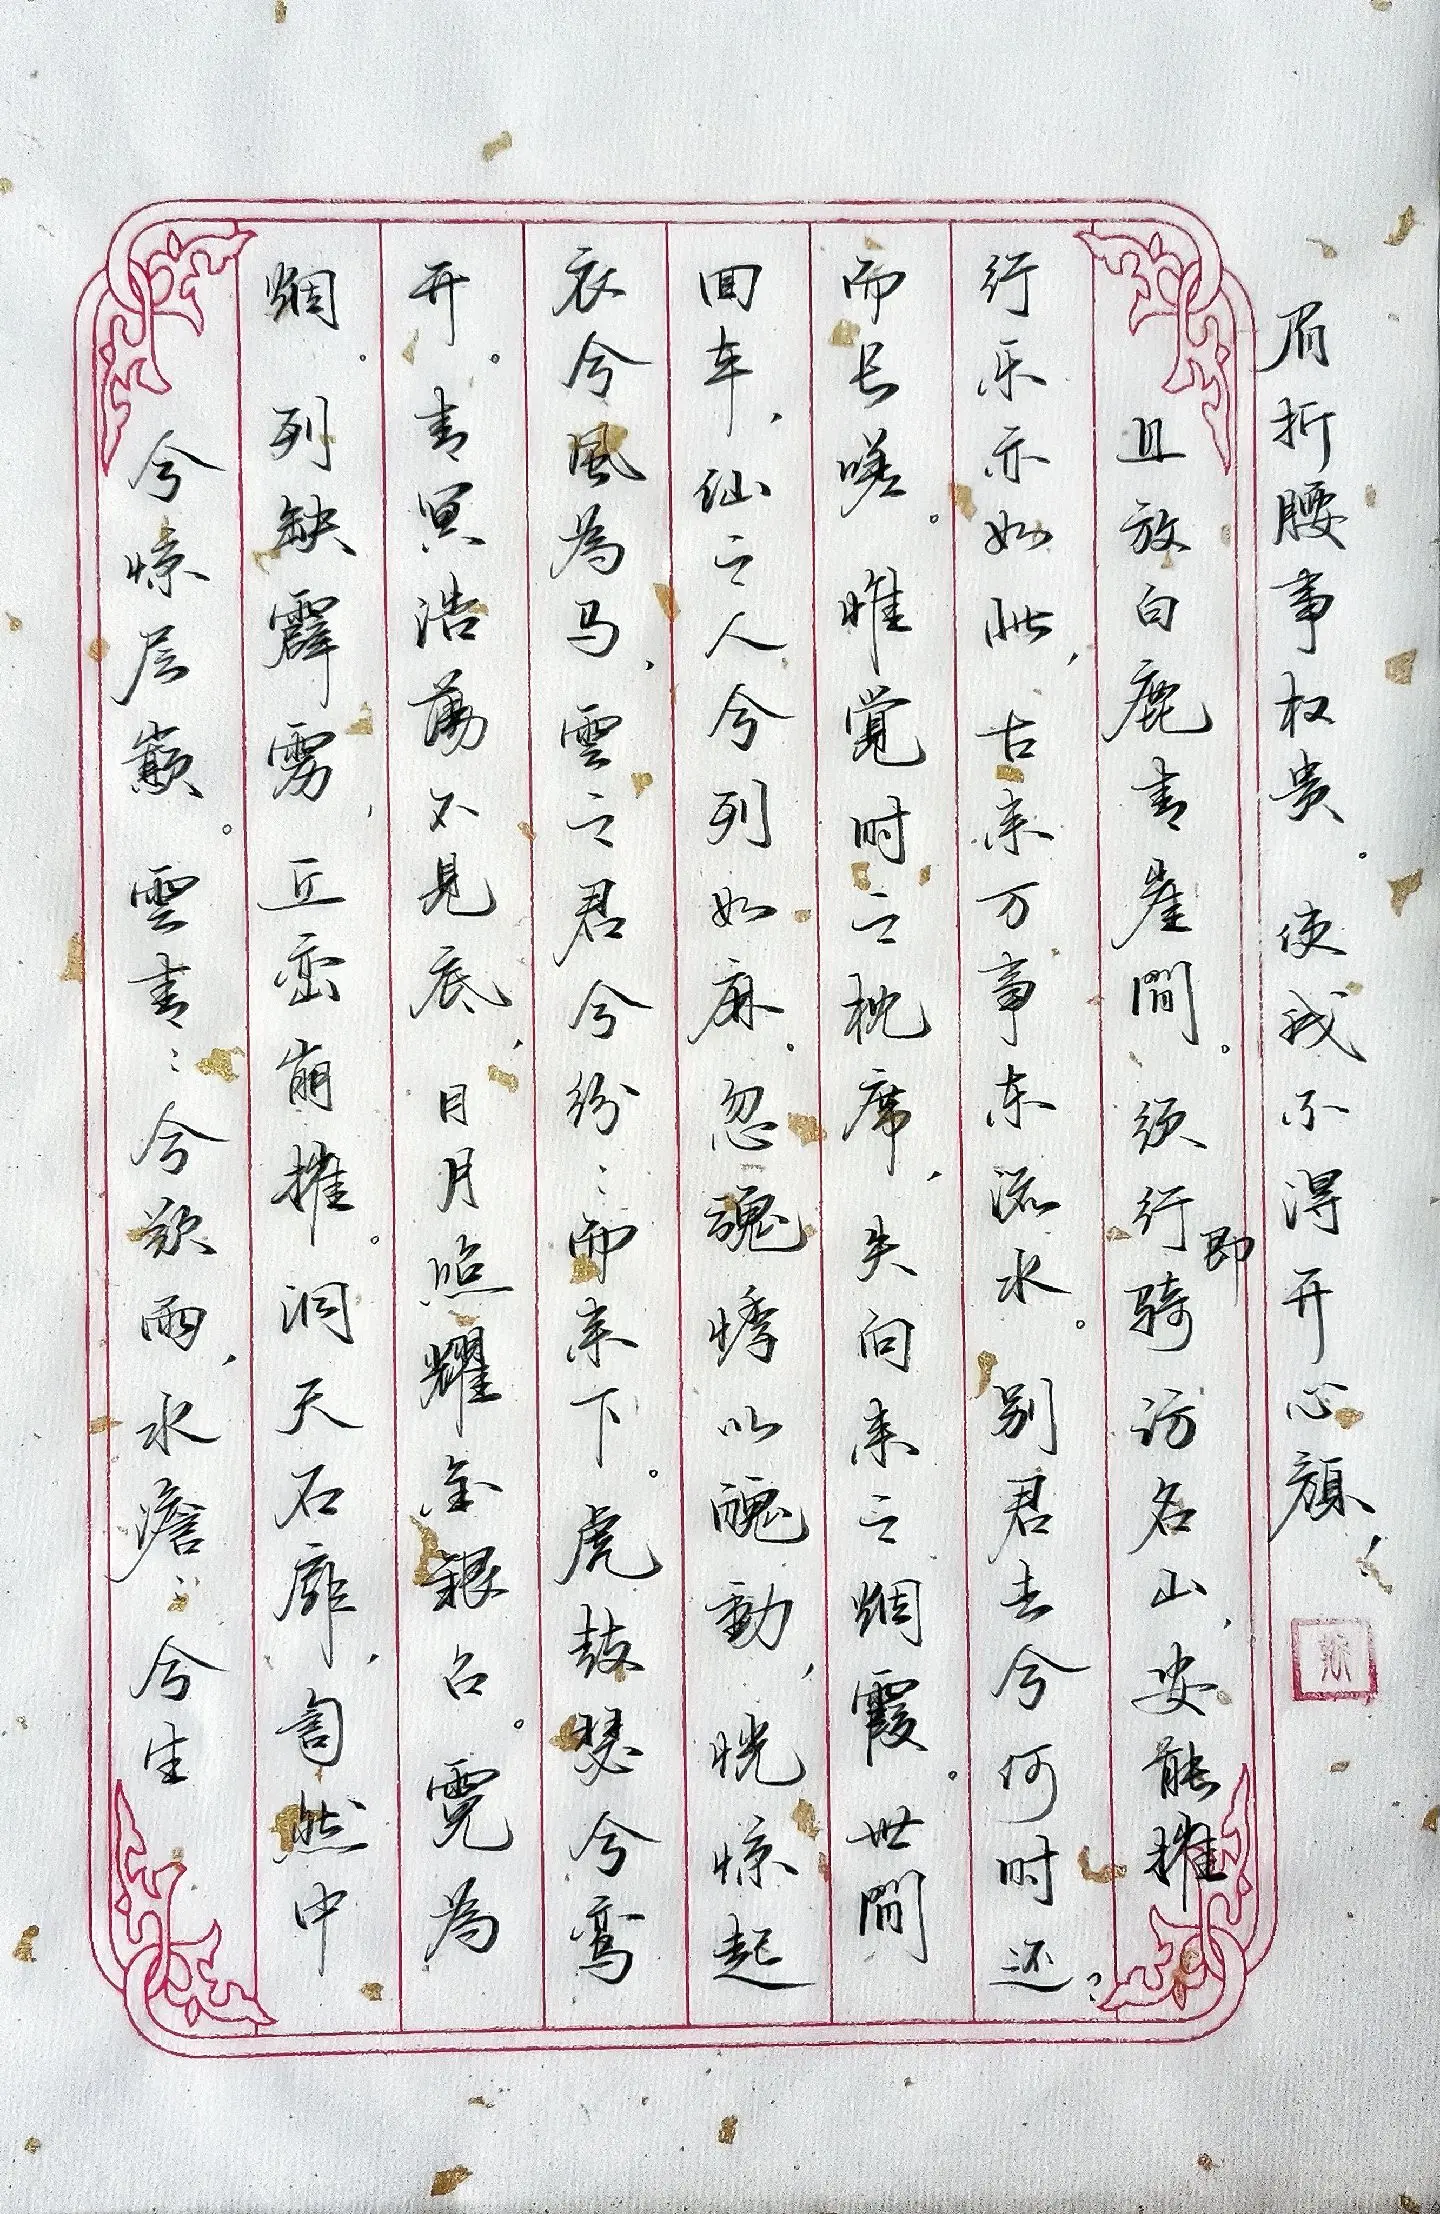 兮惊层巅。雲青〻兮欲雨,水澹〻兮生
烟。列缺霹雳,丘峦崩摧。洞天石扉,訇然中
开。青冥浩荡不見底,日月照耀金銀台。霓為
衣兮風為马,雲之君兮纷〻而来下。虎鼓瑟兮鸾
回车,仙之人兮列如麻。忽魂悸以魄動,恍惊起
而长嗟。惟覺时之枕席,失向来之烟霞。世間
行乐亦如此,古来万事东流水。别君去兮何时还?
且放白鹿青崖間。须行即骑访名山,安能摧
眉折腰事权贵。使我不得开心颜,